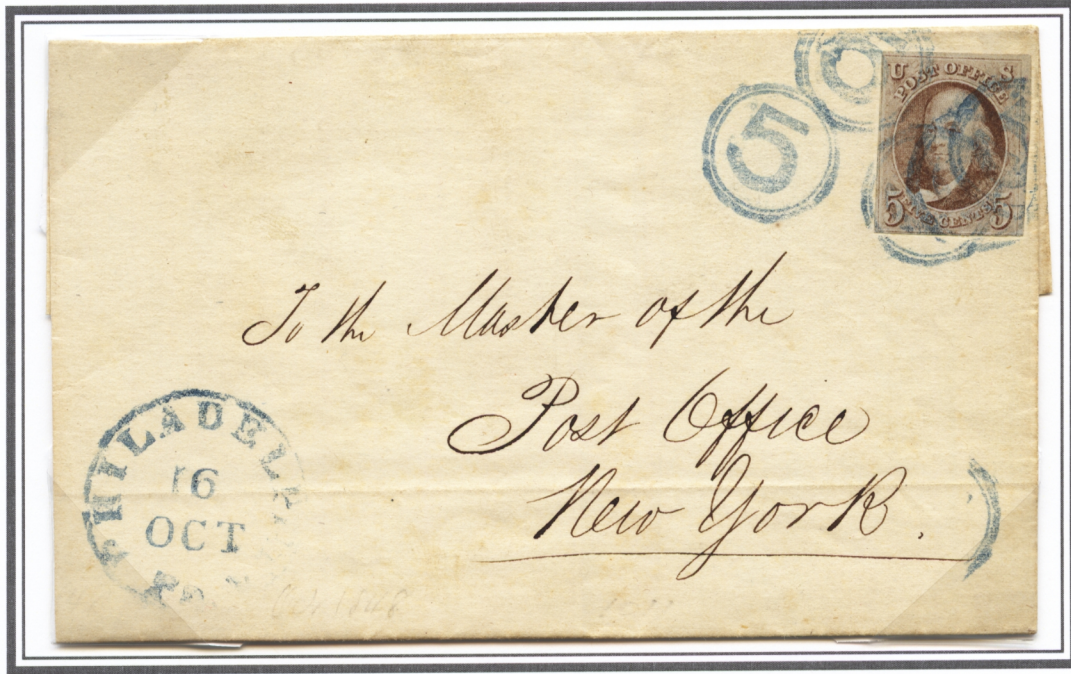 5
U S
POST OFFICE
5 FIVE CENTS 5
To the Master of the
Post Office
New York.
PHILADEL
16
OCT
Oct 1848